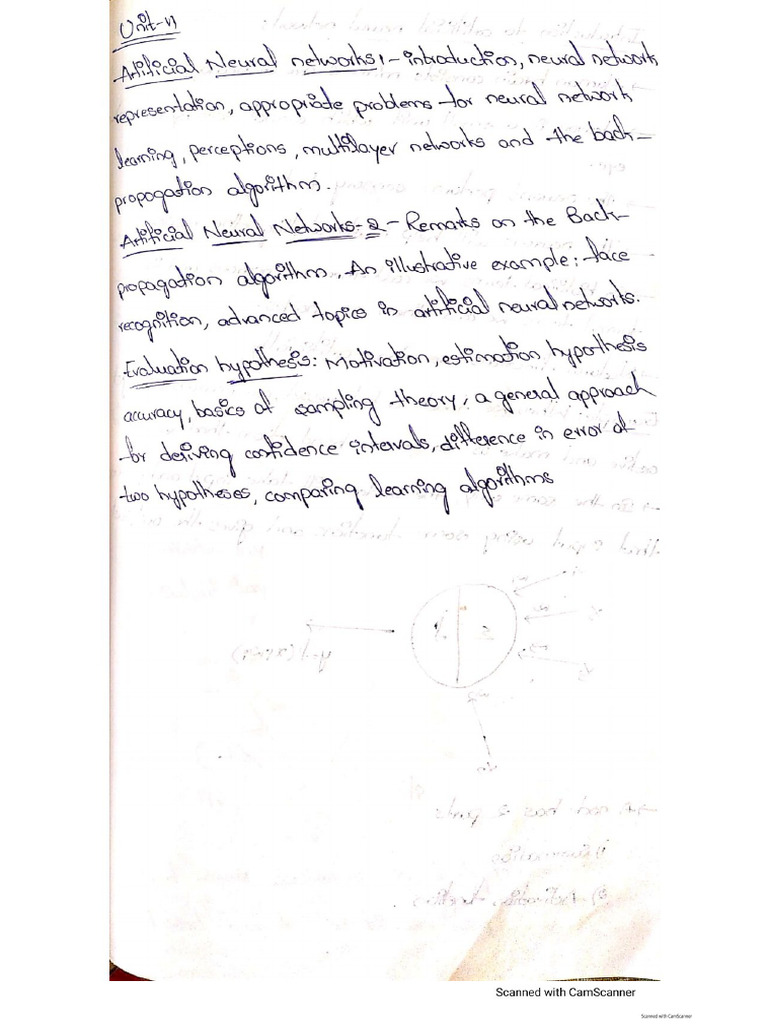 Unit-II
Artificial Neural networks1 - introduction, neural network
representation, appropriate problems for neural network
learning, perceptions, multilayer networks and the back-
propagation algorithm.
Artificial Neural Networks-2 - Remarks on the Back-
propagation algorithm, An illustrative example: face
recognition, advanced topics in artificial neural networks.
Evaluation hypothesis: Motivation, estimation hypothesis
accuracy, basics of sampling theory, a general approach
for deriving confidence intervals, difference in error of
two hypotheses, comparing learning algorithms
Scanned with CamScanner
Scanned with CamScanner